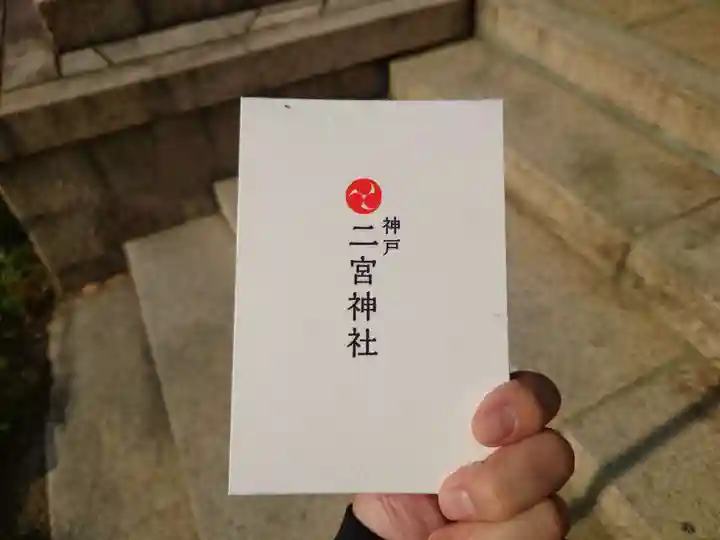 神戸
二宮神社